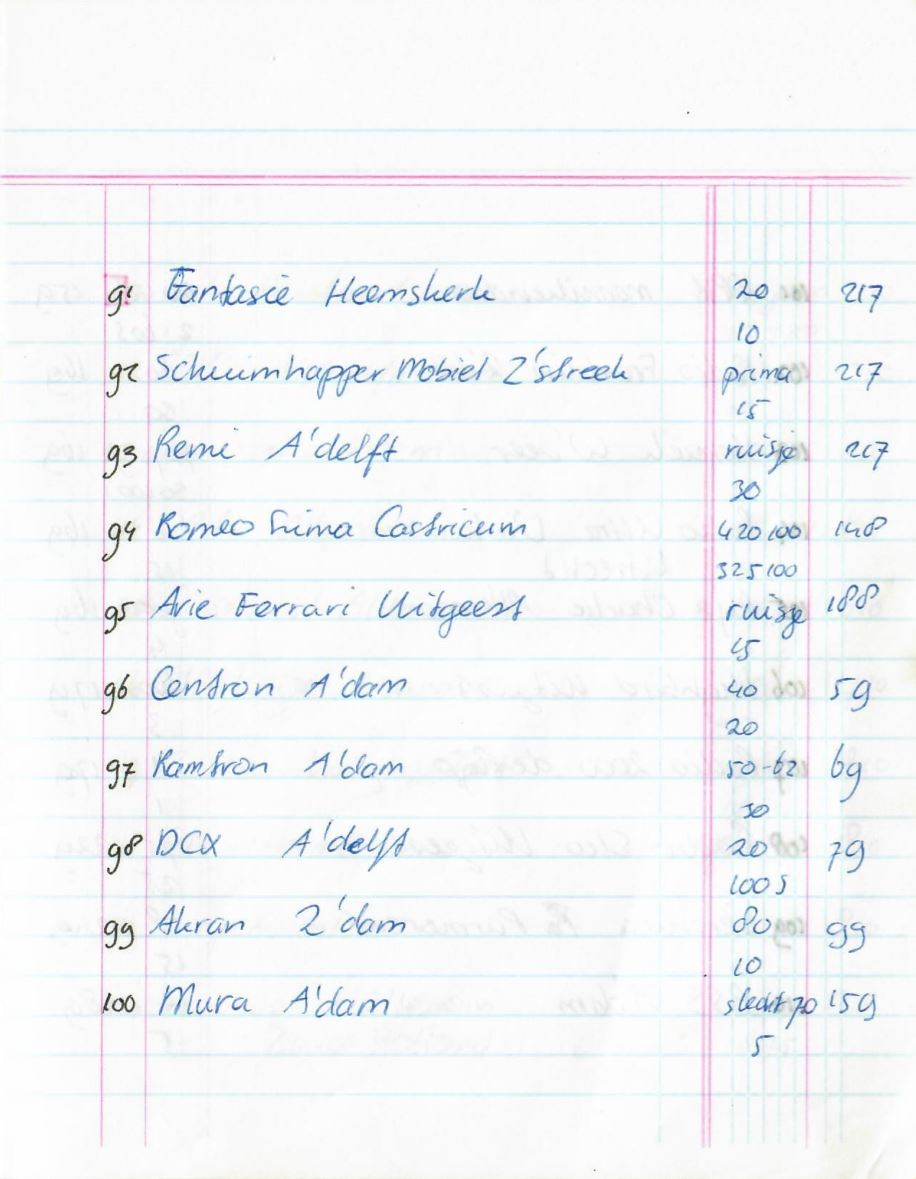 91 Fantasie Heemskerk 20 217
10
92 Schuimhapper Mobiel Z'streek prima 217
15
93 Remi A'delft ruisje 217
30
94 Romeo Sima Castricum 420 100 148
325 100
95 Arie Ferrari Uitgeest ruisje 188
15
96 Centron A'dam 40 59
20
97 Ramtron A'dam 50-62 69
30
98 DCX A'delft 20 79
100 5
99 Akran Z'dam 80 99
10
100 Mura A'dam slecht 70 159
5